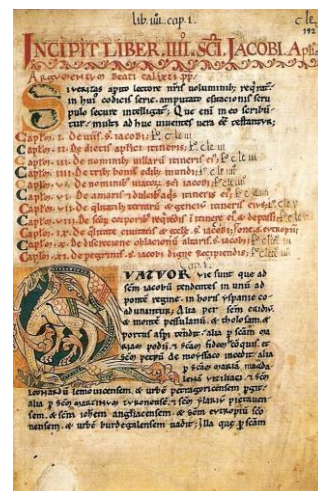 lib. iiii. cap. 1.
192
INCIPIT LIBER .IIII. SCI. IACOBI. Apli.
Argumentum beati calixti pp.
Si veritas apto lectore nris voluminib; reqrat
in hui codicis serie. amputato esitacionis scru
pulo secure intelligat. Que eni in eo scribu
tur. multi ad huc viventes vera ee testantur;
Capłm. I. De viis. s. iacobi;
Capłm. II. De dietis aplici itineris;
Capłm. III. De nominib; villaru itineris ei;
Capłm. IIII. De trib; bonis edib; mundi;
Capłm. V. De nominib; viatoz sci iacobi;
Capłm. VI. De amaris dulcib; aqs itineris ei;
Capłm. VII. De qlitatib; terraru et gentiu itineris ei;
Capłm. VIII. De scoz corporib; reqrendis i itinere ei et de passi
Capłm. IX. De qlitate civitatis et eccle. s. iacobi;
Capłm. X. De discrecione oblacionu altaris. s. iacobi;
Capłm. XI. De pegrinis. s. iacobi digne recipiendis;
QVATVOR vie sunt que ad
scm iacobu tendentes in unu ad
ponte regine. in horis yspanie co
adunantur; Alia per scm egidiu.
et monte pessulanu. et tholosam. et
portus aspi tendit. alia p scam ma
riam podii et scam fidem
scm petru de moyssaco incedit. alia
p scam maria magda
lena viziliaci. et scm
leonardu lemovicensem. et urbe petragoricensem pgit.
alia p scm martinu turonense. et scm ylariu pictaven
sem. et scm iohem angliacensem. et scm eutropiu sco
nensem. et urbe burdegalensem vadit; Illa que p scam